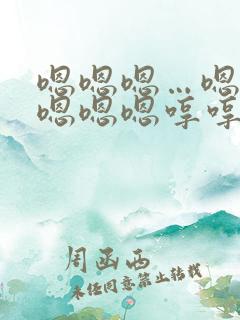 嗯嗯嗯…嗯
嗯嗯嗯哼哼
周函西
未经同意禁止转载